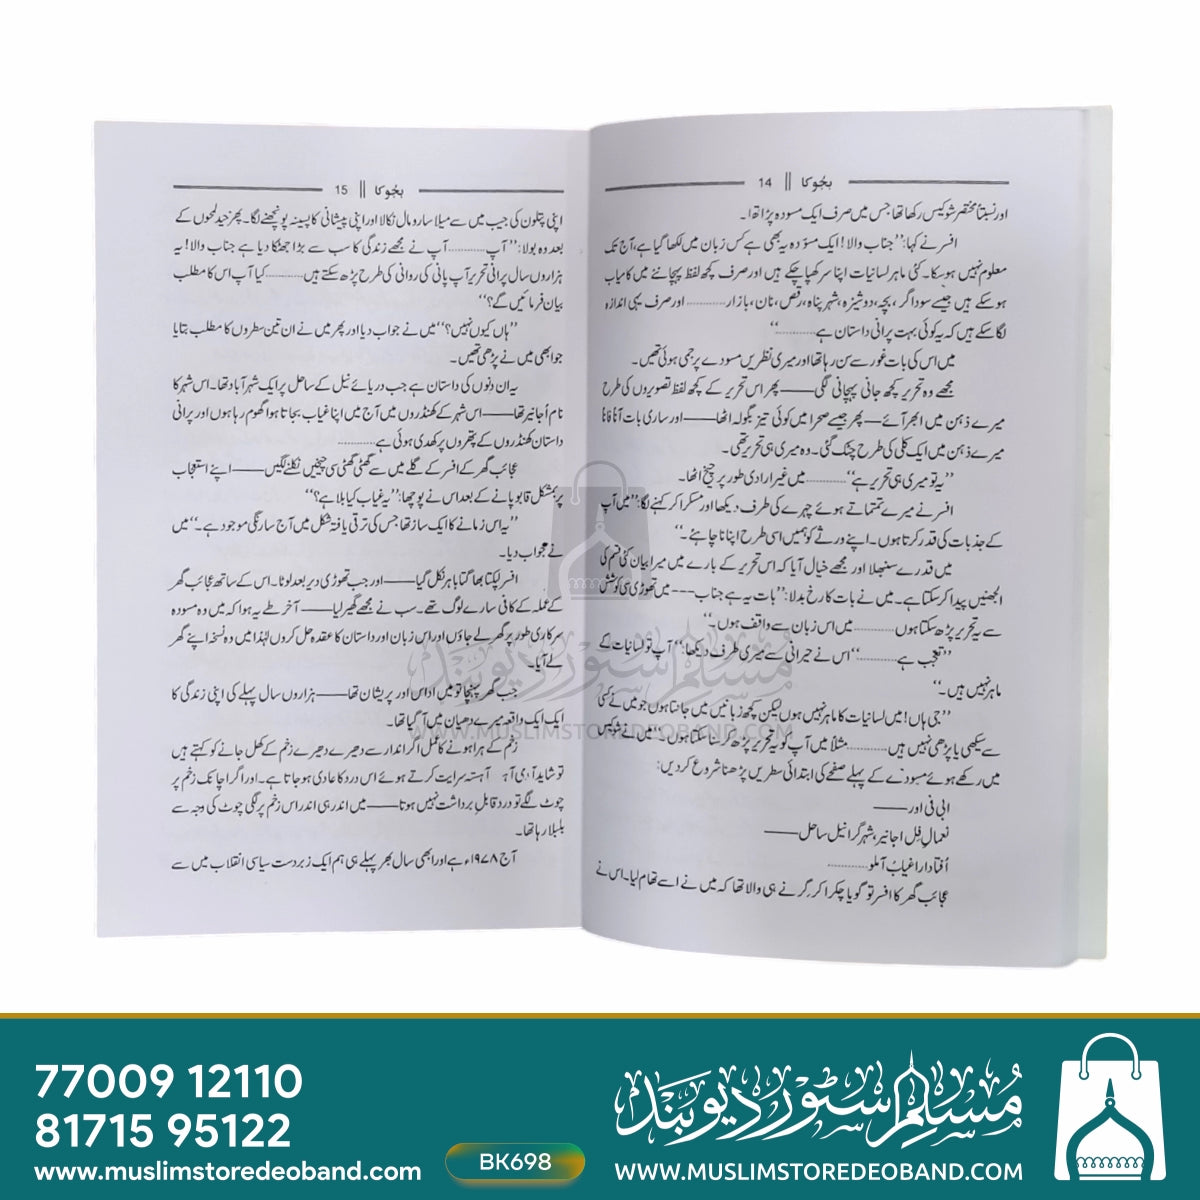 بجُوکا || 14
اور نسبتاً مختصر شوکیس رکھا تھا جس میں صرف ایک مسودہ پڑا تھا۔
افسر نے کہا: ’’جناب والا! ایک مسوّدہ یہ بھی ہے کس زبان میں لکھا گیا ہے، آج تک
معلوم نہیں ہو سکا۔ کئی ماہر لسانیات اپنا سر کھپا چکے ہیں اور صرف کچھ لفظ پہچاننے میں کامیاب
ہو سکے ہیں جیسے سوداگر، بچہ، دوشیزہ، شہر پناہ، رقص، نان، بازار............ اور صرف یہی اندازہ
لگا سکے ہیں کہ یہ کوئی بہت پرانی داستان ہے............‘‘
میں اس کی بات غور سے سن رہا تھا اور میری نظریں مسودے پر جمی ہوئی تھیں۔
مجھے وہ تحریر کچھ جانی پہچانی لگی —— پھر اس تحریر کے کچھ لفظ تصویروں کی طرح
میرے ذہن میں ابھر آئے —— پھر جیسے صحرا میں کوئی تیز بگولہ اٹھا —— اور ساری بات آناً فاناً
میرے ذہن میں ایک کلی کی طرح چٹک گئی۔ وہ میری ہی تحریر تھی۔
’’یہ تو میری ہی تحریر ہے‘‘............ میں غیر ارادی طور پر چیخ اٹھا۔
افسر نے میرے تمتماتے ہوئے چہرے کی طرف دیکھا اور مسکرا کر کہنے لگا: ’’میں آپ
کے جذبات کی قدر کرتا ہوں۔ اپنے ورثے کو ہمیں اسی طرح اپنانا چاہئے۔‘‘
میں قدرے سنبھلا اور مجھے خیال آیا کہ اس تحریر کے بارے میں میرا بیان کئی قسم کی
الجھنیں پیدا کر سکتا ہے۔ میں نے بات کا رخ بدلا: ’’بات یہ ہے جناب --- میں تھوڑی سی کوشش
سے یہ تحریر پڑھ سکتا ہوں............ میں اس زبان سے واقف ہوں۔‘‘
’’تعجب ہے............‘‘ اس نے حیرانی سے میری طرف دیکھا: ’’آپ تو لسانیات کے
ماہر نہیں ہیں۔‘‘
’’جی ہاں! میں لسانیات کا ماہر نہیں ہوں لیکن کچھ زبانیں میں جانتا ہوں جو میں نے کسی
سے سیکھی یا پڑھی نہیں ہیں............ مثلاً میں آپ کو یہ تحریر پڑھ کر سنا سکتا ہوں۔‘‘ میں نے شوکیس
میں رکھے ہوئے مسودے کے پہلے صفحے کی ابتدائی سطریں پڑھنا شروع کر دیں:
ابی نی اور ——
نعمال فِل اجانیر، شہر گرانیل ساحل ——
اُفتادار اغیاب آملو............
عجائب گھر کا افسر تو گویا چکرا کر گرنے ہی والا تھا کہ میں نے اسے تھام لیا۔ اس نے
بجُوکا || 15
اپنی پتلون کی جیب میں سے میلا سا رومال نکالا اور اپنی پیشانی کا پسینہ پونچھنے لگا۔ پھر چند لمحوں کے
بعد وہ بولا: ’’آپ............ آپ نے مجھے زندگی کا سب سے بڑا جھٹکا دیا ہے جناب والا! یہ
ہزاروں سال پرانی تحریر آپ پانی کی روانی کی طرح پڑھ سکتے ہیں............ کیا آپ اس کا مطلب
بیان فرمائیں گے؟‘‘
’’ہاں کیوں نہیں؟‘‘ میں نے جواب دیا اور پھر میں نے ان تین سطروں کا مطلب بتایا
جو ابھی میں نے پڑھی تھیں۔
یہ ان دنوں کی داستان ہے جب دریائے نیل کے ساحل پر ایک شہر آباد تھا۔ اس شہر کا
نام اُجانیر تھا —— اس شہر کے کھنڈروں میں آج میں اپنا غیاب بجاتا ہوا گھوم رہا ہوں اور پرانی
داستان کھنڈروں کے پتھروں پر کھدی ہوئی ہے............
عجائب گھر کے افسر کے گلے میں سے گھٹی گھٹی سی چیخیں نکلنے لگیں —— اپنے استعجاب
پر بمشکل قابو پانے کے بعد اس نے پوچھا: ’’یہ غیاب کیا بلا ہے؟‘‘
’’یہ اس زمانے کا ایک ساز تھا جس کی ترقی یافتہ شکل میں آج سارنگی موجود ہے۔‘‘ میں
نے جواب دیا۔
افسر لپکتا بھاگتا باہر نکل گیا —— اور جب تھوڑی دیر بعد لوٹا۔ اس کے ساتھ عجائب گھر
کے عملہ کے کافی سارے لوگ تھے۔ سب نے مجھے گھیر لیا —— آخر طے یہ ہوا کہ میں وہ مسودہ
سرکاری طور پر گھر لے جاؤں اور اس زبان اور داستان کا عقدہ حل کروں لہٰذا میں وہ نسخہ اپنے گھر
لے آیا۔
جب گھر پہنچا تو میں اداس اور پریشان تھا —— ہزاروں سال پہلے کی اپنی زندگی کا
ایک ایک واقعہ میرے دھیان میں آ گیا تھا۔
زخم کے ہرا ہونے کا عمل اگر اندار سے دھیرے دھیرے زخم کے کھل جانے کو کہتے ہیں
تو شاید آدمی آہستہ آہستہ سرایت کرتے ہوئے اس درد کا عادی ہو جاتا ہے۔ اور اگر اچانک زخم پر
چوٹ لگے تو درد قابلِ برداشت نہیں ہوتا —— میں اندر ہی اندر اس زخم پر لگی چوٹ کی وجہ سے
بلبلا رہا تھا۔
آج ۱۹۷۸ء ہے اور ابھی سال بھر پہلے ہی ہم ایک زبردست سیاسی انقلاب میں سے
مسلم سٹور دیوبند
WWW.MUSLIMSTOREDEOBAND.COM
77009 12110
81715 95122
www.muslimstoredeoband.com
BK698
مسلم سٹور دیوبند
WWW.MUSLIMSTOREDEOBAND.COM